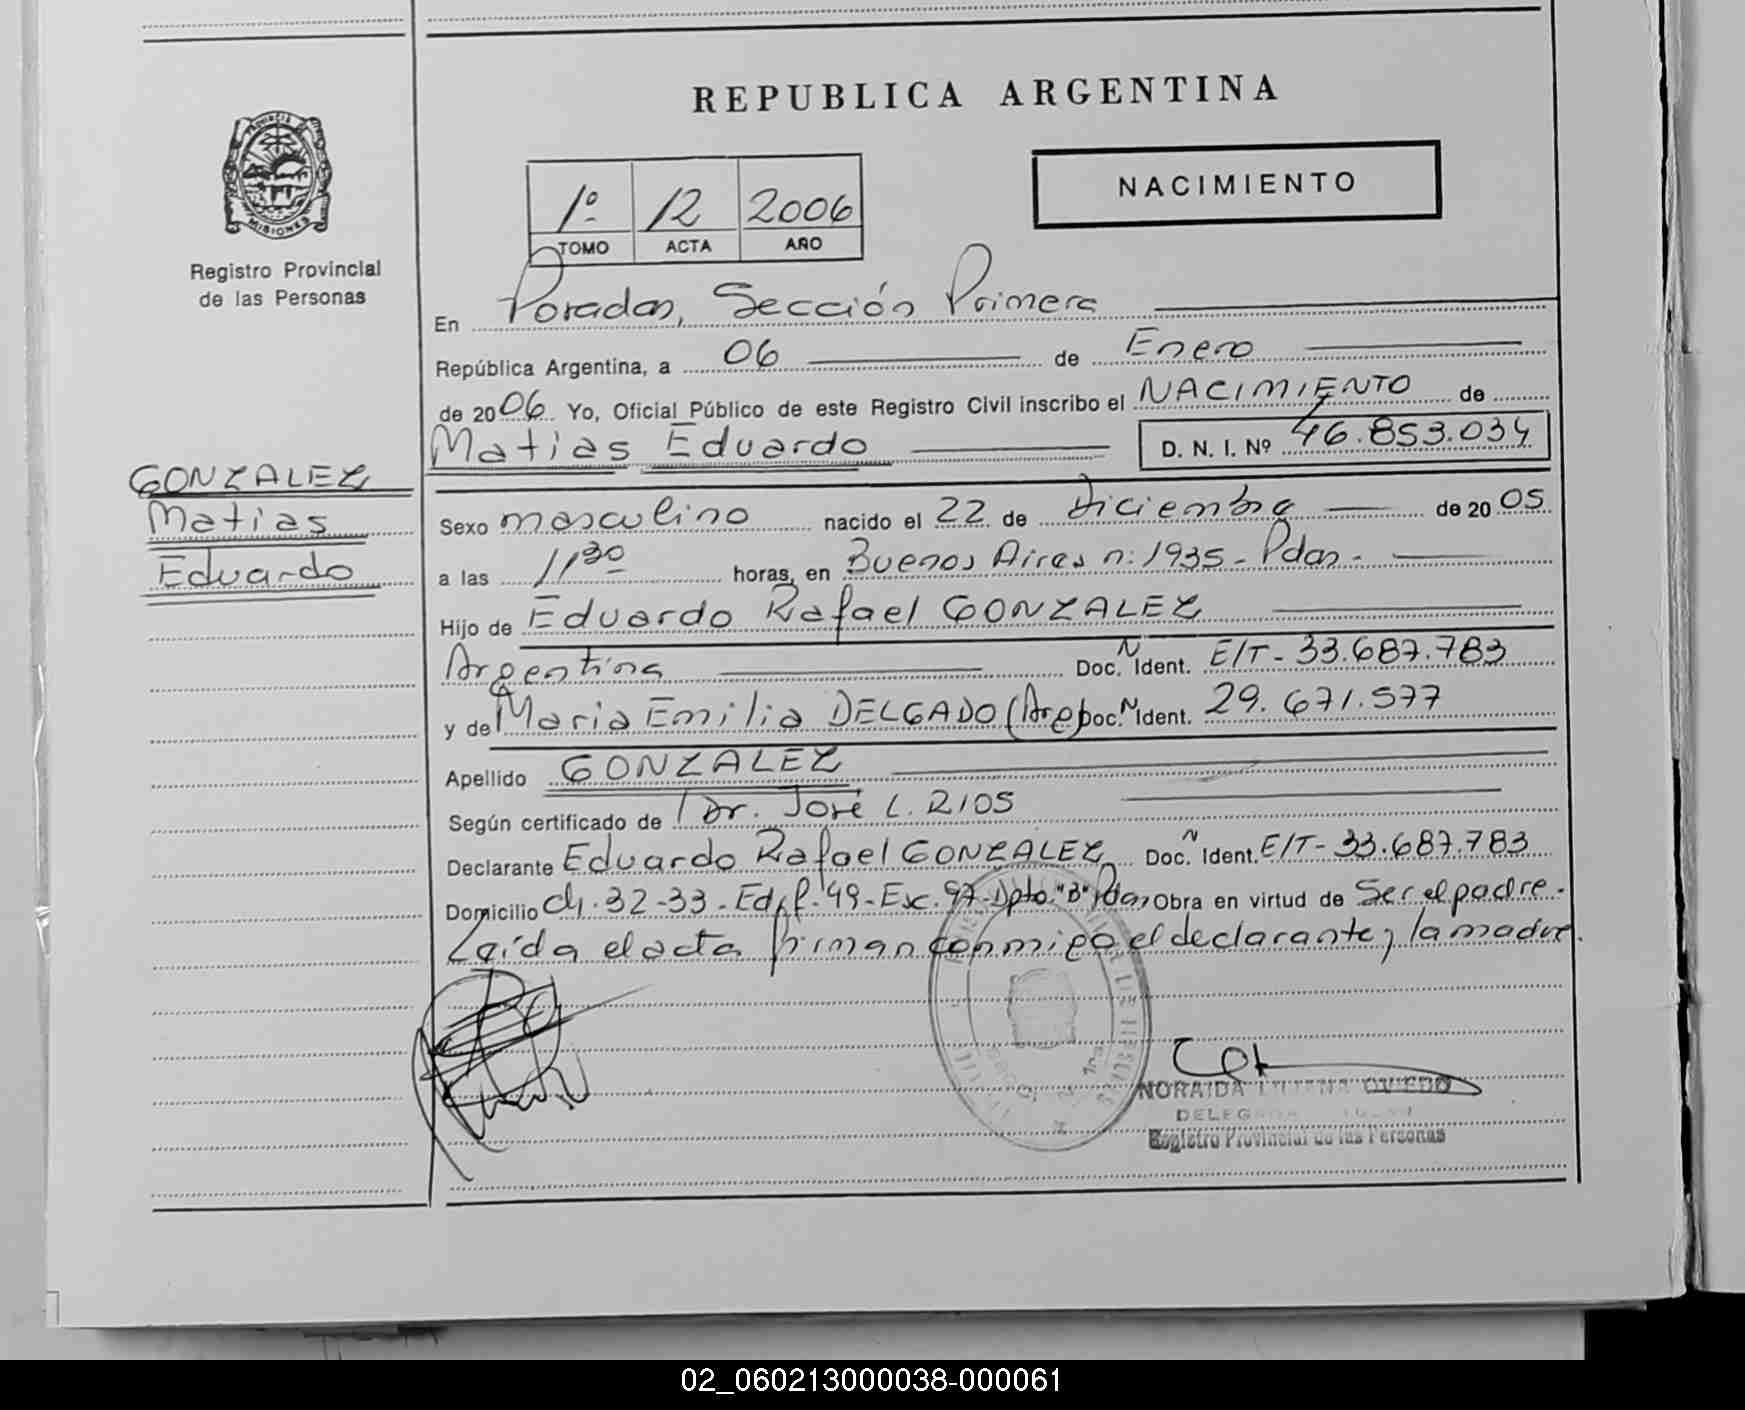 REPUBLICA ARGENTINA
NACIMIENTO
1º 12 2006
TOMO ACTA AÑO
PROVINCIA DE
MISIONES
Registro Provincial
de las Personas
En Posadas, Sección Primera
República Argentina, a 06 de Enero
de 2006 Yo, Oficial Público de este Registro Civil inscribo el NACIMIENTO de
Matias Eduardo D. N. I. Nº 46.853.034
GONZALEZ
Matias
Eduardo
Sexo masculino nacido el 22 de Diciembre de 2005
a las 11,30 horas, en Buenos Aires n: 1935 - Pdas -
Hijo de Eduardo Rafael GONZALEZ
Argentina Doc. N Ident. E/T - 33.687.783
y de Maria Emilia DELGADO (Arg) Doc. N Ident. 29.671.577
Apellido GONZALEZ
Según certificado de Dr. José L. RIOS
Declarante Eduardo Rafael GONZALEZ Doc. N Ident. E/T - 33.687.783
Domicilio Ch. 32-33 - Edif. 49 - Esc. 97 - Dpto. "B" Pdas, Obra en virtud de Ser el padre.
Leída el acta firman conmigo el declarante y la madre.
NORAIDA LILIANA OVIEDO
Registro Provincial de las Personas
02_060213000038-000061